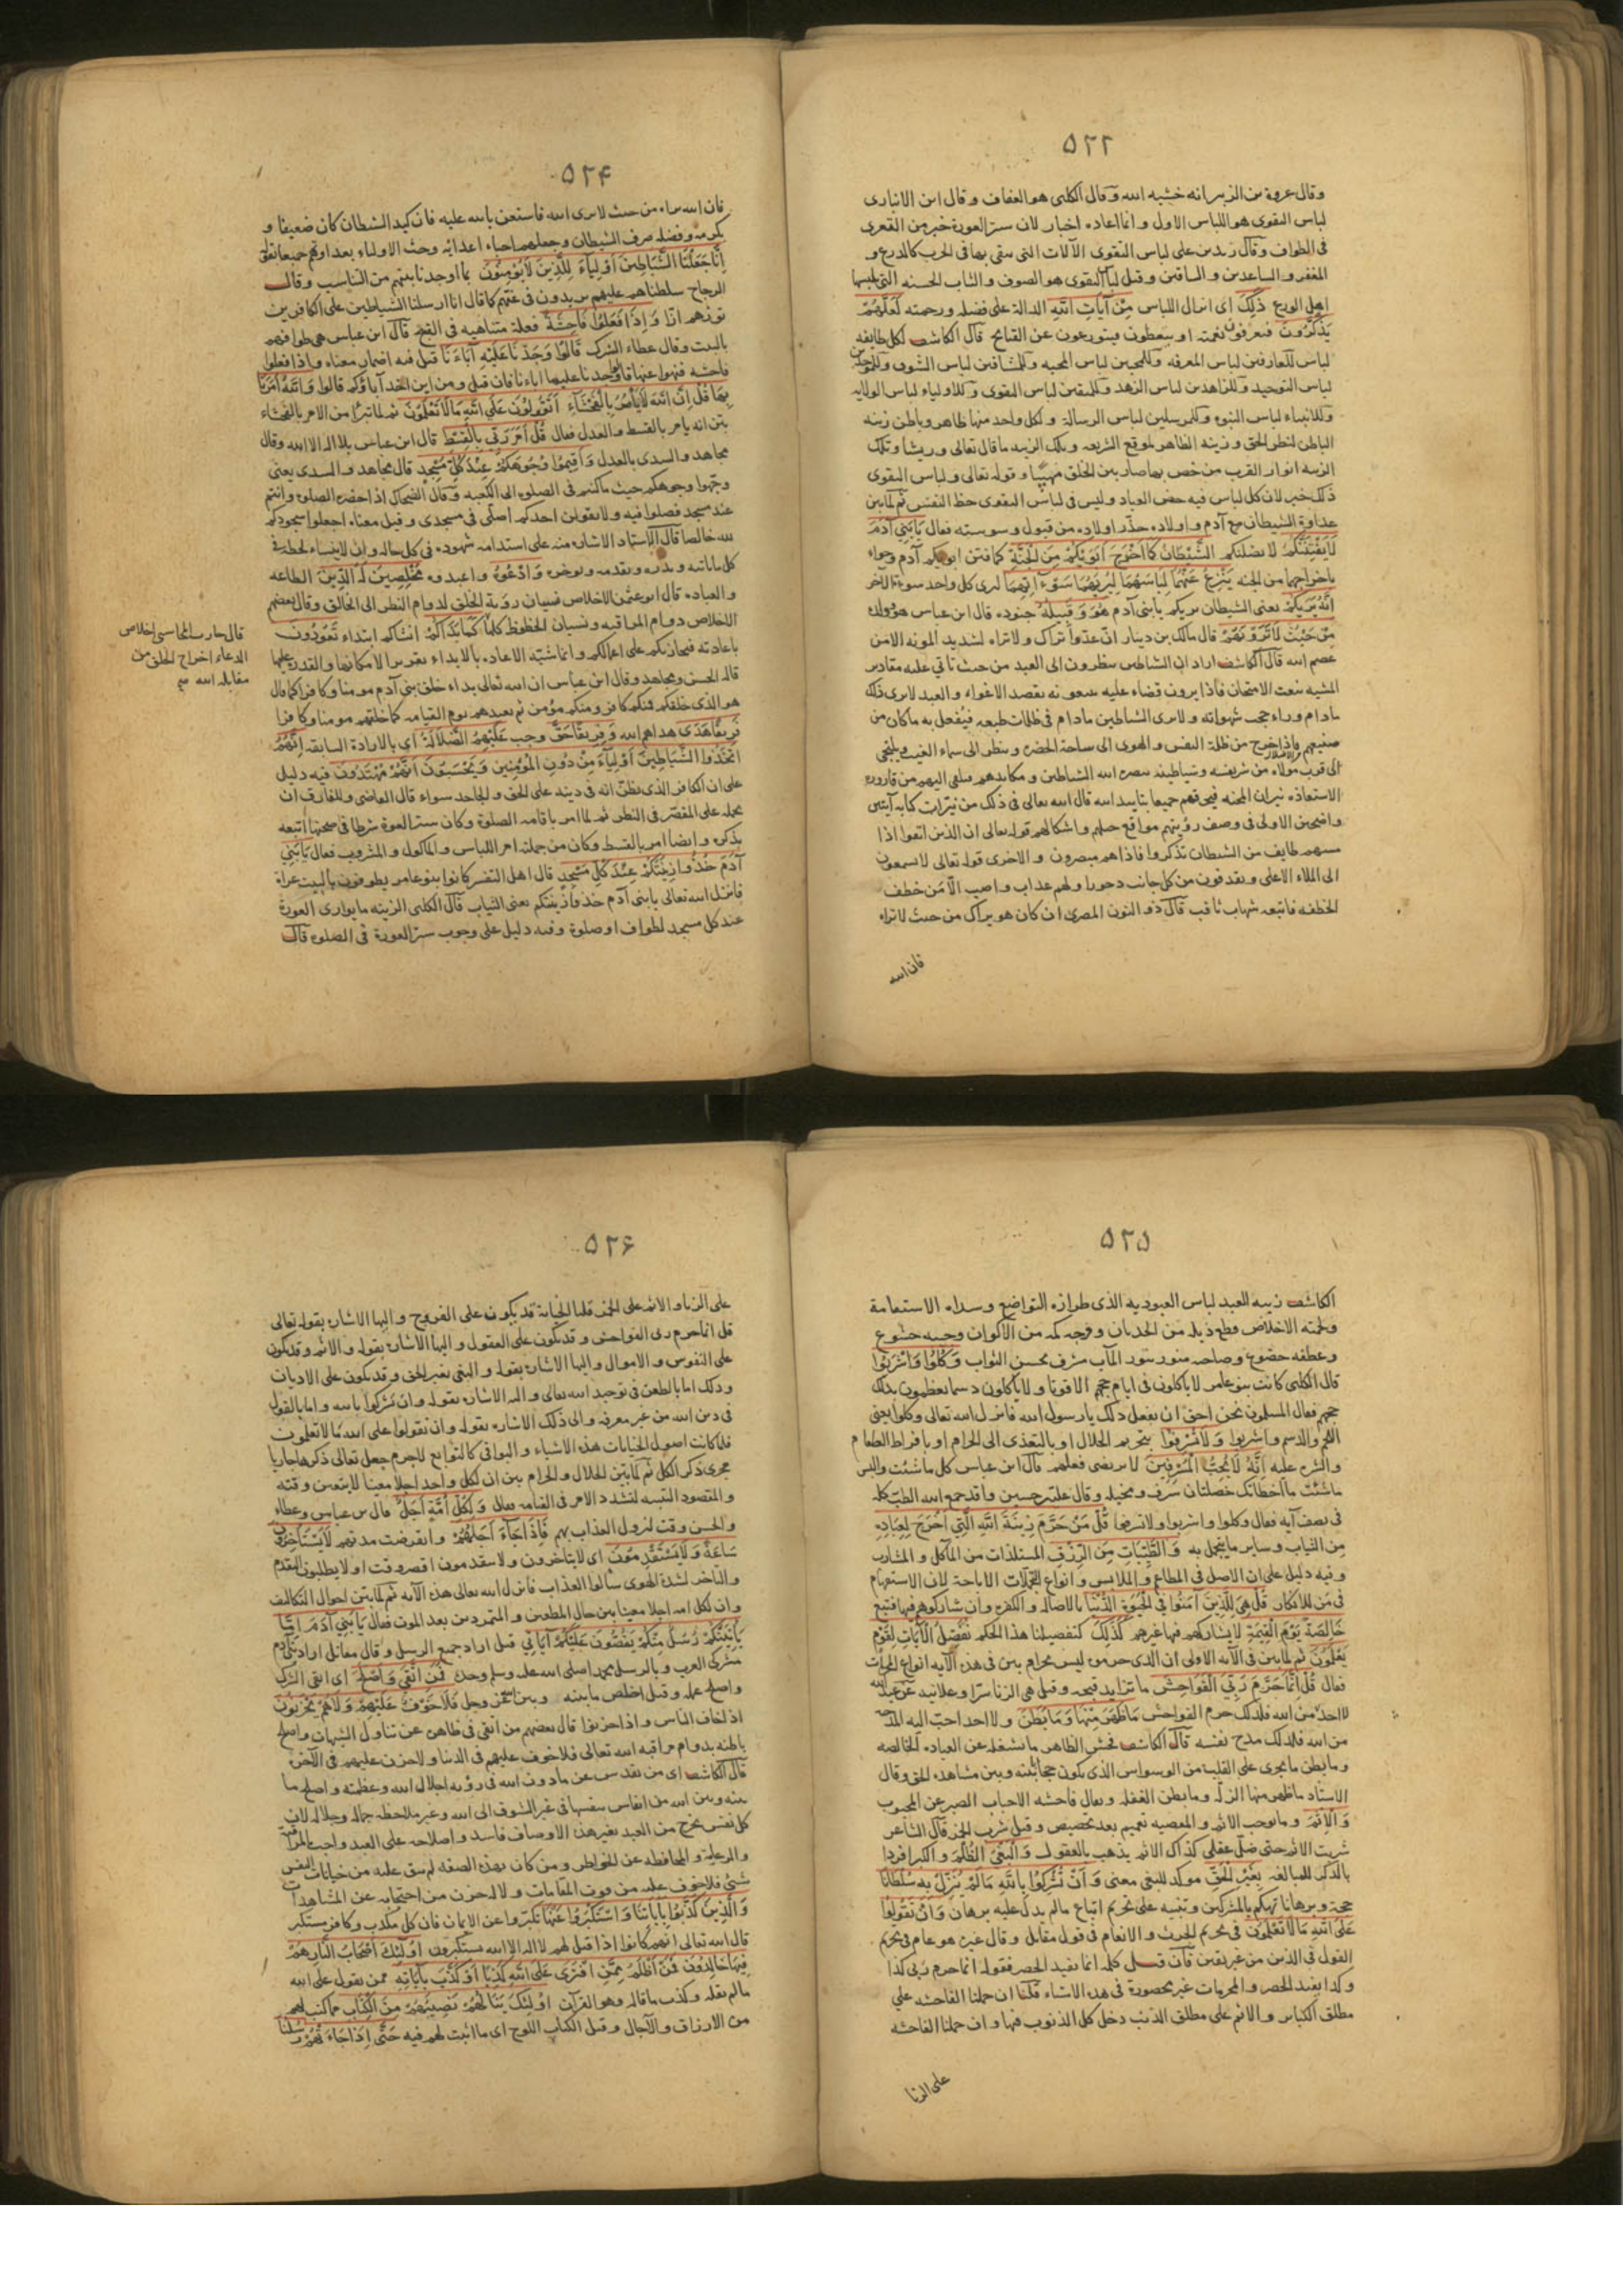 ٥٢٣
وقال عروة بن الزبير انه خشيه الله وقال الكلبى هو العفاف وقال ابن الانبارى
لباس التقوى هو اللباس الاول وانما اعاده اخبار لان ستر العورة خير من التعرى
فى الطواف وقال زيد بن على لباس التقوى الآلات التى يتقى بها فى الحرب كالدرع و
المغفر والساعدين والساقين وقيل لباس التقوى هو الصوف والثياب الخشنه التى يلبسها
اهل الورع ذَلِكَ اى انزال اللباس مِنْ آيَاتِ اللَّهِ الدالة على فضله ورحمته لَعَلَّهُمْ
يَذَّكَّرُونَ فيعرفون نعمته او يتعظون فيتورعون عن القبائح قال الكاشف لكل طايفه
لباس للعارفين لباس المعرفه وللمحبين لباس المحبه وللمشتاقين لباس الشوق وللموحدين
لباس التوحيد وللزاهدين لباس الزهد وللمتقين لباس التقوى وللاولياء لباس الولايه
وللانبياء لباس النبوه وللمرسلين لباس الرسالة ولكل واحد منها ظاهر وباطن زينه
الباطن لنظر الحق وزينه الظاهر لموقع الشريعه وتلك الزينه ما قال تعالى وريشا وتلك
الزينه انوار القرب من خص بها صار بين الخلق مهيبا وقوله تعالى ولباس التقوى
ذلك خير لان كل لباس فيه حظ العباد وليس فى لباس التقوى حظ النفس ثم لما بين
عداوة الشيطان مع آدم واولاده حذّر اولاده من قبول وسوسته فقال يَابَنِي آدَمَ
لَايَفْتِنَنَّكُمُ لا يضلنكم الشَّيْطَانُ كَمَا أَخْرَجَ أَبَوَيْكُمْ مِنَ الْجَنَّةِ كما فتن ابويكم آدم وحواء
باخراجهما من الجنه يَنْزِعُ عَنْهُمَا لِبَاسَهُمَا لِيُرِيَهُمَا سَوْءَاتِهِمَا ليرى كل واحد سوءة الآخر
إِنَّهُ يَرَيكُمْ يعنى الشيطان يريكم يا بنى آدم هُوَ وَقَبِيلُهُ جنوده قال ابن عباس هو وولده
مِنْ حَيْثُ لَاتَرَوْنَهُمْ قال مالك بن دينار انّ عدوّا يراك ولا تراه لشديد المونه الا من
عصم الله قال الكاشف اراد ان الشياطين ينظرون الى العبد من حيث تاتى عليه مقادير
المشيه بنعت الامتحان فاذا يرون قضاء عليه يتبعونه بقصد الاغواء والعبد لا يرى ذلك
مادام وراء حجب شهواته ولا يرى الشياطين مادام فى ظلمات طبعه فيُفعل به ما كان من
صنيعهم فاذا خرج من ظلة النفس والهوى الى ساحة الحضره وينظر الى سماء الغيب ويلتجى
الى قرب مولاه من شر نفسه وشياطينه يبصره الله الشياطين ومكايدهم فيلقى اليهم من قاروره
الاستعاذه نيران المحبه فيحرقهم جميعا بتاييد الله قال الله تعالى فى ذلك من نيّرات كتابه آيتين
واضحتين الاولى فى وصف رؤيتهم مواقع حيلهم واشكالهم قوله تعالى ان الذين اتقوا اذا
مسهم طايف من الشيطان تذكروا فاذاهم مبصرون والاخرى قوله تعالى لا يسمعون
الى الملاء الاعلى ويقذفون من كل جانب دحورا ولهم عذاب واصب الّا مَن خطف
الخطفه فاتبعه شهاب ثاقب قال ذو النون المصرى ان كان هو يراك من حيث لا تراه
فان الله
٥٢۴
فان الله يراه من حيث لا يرى الله فاستعن بالله عليه فان كيد الشيطان كان ضعيفا و
بكرمه وفضله صرف الشيطان وجعلهم احباء اعدائه وحث الاولياء بعداوتهم جميعا فقال
إِنَّا جَعَلْنَا الشَّيَاطِينَ أَوْلِيَاءَ لِلَّذِينَ لَايُؤْمِنُونَ بما اوجدنا بينهم من التناسب وقال
الزجاج سلطناهم عليهم يزيدون فى غيّهم كما قال انا ارسلنا الشياطين على الكافرين
تؤزهم ازّا وَإِذَا فَعَلُوا فَاحِشَةً فعلة متناهيه فى القبح قال ابن عباس هى طوافهم
بالبيت وقال عطاء الشرك قَالُوا وَجَدْنَا عَلَيْهَا آبَاءَنَا قيل فيه اضمار معناه واذا فعلوا
فاحشه فنهوا عنها قالوا وجدنا عليها اباءنا فان قيل ومن اين اخذ آباؤكم قالوا وَاللَّهُ أَمَرَنَا
بِهَا قُلْ إِنَّ اللَّهَ لَايَأْمُرُ بِالْفَحْشَاءِ أَتَقُولُونَ عَلَى اللَّهِ مَا لَاتَعْلَمُونَ ثم لما تبرّا من الامر بالفحشاء
بيّن انه يامر بالقسط والعدل فقال قُلْ أَمَرَ رَبِّي بِالْقِسْطِ قال ابن عباس بلا اله الا الله وقال
مجاهد والسدى بالعدل وَأَقِيمُوا وُجُوهَكُمْ عِنْدَ كُلِّ مَسْجِدٍ قال مجاهد والسدى يعنى
وجّهوا وجوهكم حيث ما كنتم فى الصلوه الى الكعبه وقال الضحاك اذا حضره الصلوه وانتم
عند مسجد فصلوا فيه ولا يقولن احدكم اصلّى فى مسجدى وقيل معناه اجعلوا سجودكم
لله خالصا قال الاستاد الاشاره منه على استدامه شهوده فى كل حاله وان لا ينساه لحظة فى
كل ما ياتيه ويذره ويقدمه ويوخره وَادْعُوهُ واعبدوه مُخْلِصِينَ لَهُ الدِّينَ الطاعه
والعباده قال ابوعثمن الاخلاص نسيان رؤية الخلق لدوام النظر الى الخالق وقال بعضهم
الاخلاص دوام المراقبه ونسيان الحظوظ كلها كَمَا بَدَأَكُمْ انشاكم ابتداء تَعُودُونَ
باعادته فيجازيكم على اعمالكم وانما شبّه الاعاده بالابداء تقريرا لامكانها والقدره عليها
قاله الحسن ومجاهد وقال ابن عباس ان الله تعالى بداء خلق بنى آدم مومنا وكافرا كما قال
هو الذى خلقكم فمنكم كافر ومنكم مؤمن ثم يعيدهم يوم القيامه كما خلقهم مومنا وكافرا
فَرِيقًا هَدَى هداهم الله وَفَرِيقًا حَقَّ وجب عَلَيْهِمُ الضَّلَالَةُ اى بالارادة السابقه إِنَّهُمُ
اتَّخَذُوا الشَّيَاطِينَ أَوْلِيَاءَ مِنْ دُونِ المُؤْمِنِين وَيَحْسَبُونَ أَنَّهُمْ مُهْتَدُونَ فيه دليل
على ان الكافر الذى يظنّ انه فى دينه على الحق والجاحد سواء قال القاضى وللفارق ان
يحمله على المقصّر فى النظر ثم لما امر باقامه الصلوة وكان ستر العورة شرطا فى صحتها اتبعه
بذكره وايضا امر بالقسط وكان من جملته امر اللباس والماكول والمشروب فقال يَابَنِي
آدَمَ خُذُوا زِينَتَكُمْ عِنْدَ كُلِّ مَسْجِدٍ قال اهل التفسر كانوا بنو عامر يطوفون بالبيت عراة
فانزل الله تعالى يا بنى آدم خذوا زينتكم يعنى الثياب قال الكلبى الزينه ما يوارى العورة
عند كل مسجد لطواف او صلوة وفيه دليل على وجوب ستر العورة فى الصلوه قال
قال حارث المحاسبى اخلاص
الدعاء اخراج الخلق من
مقابله الله
٥٢٥
الكاشف زينه للعبد لباس العبوديه الذى طرازه التواضع وسداه الاستقامة
ولحمته الاخلاص قطع ذيله من الحدثان وفرجه كمه من الاكوان وجيبه خشوع
وعطفه خضوع وصاحبه منور بنور المآب مشرف بحسن الثواب وَكُلُوا وَاشْرَبُوا
قال الكلبى كانت بنو عامر لا ياكلون فى ايام حجهم الا قوتا ولا ياكلون دسما يعظمون بذلك
حجهم فقال المسلمون نحن احق ان نفعل ذلك يا رسول الله فانزل الله تعالى وكلوا يعنى
اللحم والدسم واشربوا وَلَاتُسْرِفُوا بتحريم الحلال او بالتعدى الى الحرام او بافراط الطعام
والشره عليه إِنَّهُ لَايُحِبُّ الْمُسْرِفِينَ لا يرتضى فعلهم قال ابن عباس كل ما شئت والبس
ما شئت ما اخطاتك خصلتان سرف ومخيله وقال على بن حسين واقد جمع الله الطب كله
فى نصف آيه فقال وكلوا واشربوا ولا تسرفوا قُلْ مَنْ حَرَّمَ زِينَةَ اللَّهِ الَّتِي أَخْرَجَ لِعِبَادِهِ
من الثياب وساير ما يتجمل به وَالطَّيِّبَاتِ مِنَ الرِّزْقِ المستلذات من المآكل والمشارب
وفيه دليل على ان الاصل فى المطاعم والملابس وانواع التجملات الاباحة لان الاستفهام
فى مَن للانكار قُلْ هِيَ لِلَّذِينَ آمَنُوا فِي الْحَيَوةِ الدُّنْيَا بالاصاله والكفره وان شاركوهم فيها فتبع
خَالِصَةً يَوْمَ الْقِيَمَةِ لا يشاركهم فيها غيرهم كَذَلِكَ كتفصيلنا هذا الحكم نُفَصِّلُ الْآيَاتِ لِقَوْمٍ
يَعْلَمُونَ ثم لما بين فى الآيه الاولى ان الذى حرموه ليس بحرام بين فى هذه الآيه انواع المحرمات
فقال قُلْ إِنَّمَا حَرَّمَ رَبِّيَ الْفَوَاحِشَ ما تزايد قبحه وقيل هى الزنا سرّا وعلانيه
لا احد من الله فلذلك حرم الفواحش مَاظَهَرَ مِنْهَا وَمَابَطَنَ ولا احد احبّ اليه المدحه
من الله فلذلك مدح نفسه قال الكاشف فحش الظاهر ما يشغله عن العباده الخالصه
وما بطن ما يجرى على القلب من الوسواس الذى يكون حجابا بينه وبين مشاهده الحق وقال
الاستاد ما ظهر منها الزلّه وما بطن الغفله ويقال فاحشه الاحباب الصبر عن المحبوب
وَالْإِثْمَ وما يوجب الاثم والمعصيه تعميم بعد تخصيص وقيل شرب الخمر قال الشاعر
شربت الاثم حتى ضلّ عقلى كذاك الاثم يذهب بالعقول وَالْبَغْيَ الظُّلْمَ والكبر افردا
بالذكر للمبالغه بِغَيْرِ الْحَقِّ موكد للبغى معنى وَأَنْ تُشْرِكُوا بِاللَّهِ مَالَمْ يُنَزِّلْ بِهِ سُلْطَانًا
حجة وبرهانا تهكم بالمشركين وتنبيه على تحريم اتباع مالم يدل عليه برهان وَأَنْ تَقُولُوا
عَلَى اللَّهِ مَا لَاتَعْلَمُونَ فى تحريم الحرث والانعام فى قول مقاتل وقال غيره هو عام فى تحريم
القول فى الدين من غير يقين فان قيل كلمه انما تفيد الحصر فقوله انما حرم ربى كذا
وكذا يفيد الحصر والمحرمات غير محصورة فى هذه الاشياء قلنا ان حملنا الفاحشه على
مطلق الكباير والاثم على مطلق الذنب دخل كل الذنوب فيها وان حملنا الفاحشه
على الزنا
٥٢۶
على الزنا والاثم على الخمر قلنا الخيانة قد يكون على الفروج واليها الاشاره بقوله تعالى
قل انما حرم ربى الفواحش وقد تكون على العقول واليها الاشاره بقوله والاثم وقد يكون
على النفوس والاموال واليها الاشاره بقوله والبغى بغير الحق وقد تكون على الاديان
وذلك اما بالطعن فى توحيد الله تعالى واليه الاشاره بقوله وان تشركوا بالله واما بالقول
فى دين الله من غير معرفه والى ذلك الاشاره بقوله وان تقولوا على الله ما لا تعلمون
فلما كانت اصول الجنايات هذه الاشياء والبواقى كالتوابع لاجرم جعل تعالى ذكرها جاريا
مجرى ذكر الكل ثم لما بيّن الحلال والحرام بين ان لكل واحد اجلا معينا لا يتعين وقته
والمقصود التنبيه لتشدد الامر فى القيامه فقال وَلِكُلِّ أُمَّةٍ أَجَلٌ قال بن عباس وعطاء
والحسن وقت لنزول العذاب بهم فَإِذَا جَاءَ أَجَلُهُمْ وانقرضت مدتهم لَايَسْتَأْخِرُونَ
سَاعَةً وَلَايَسْتَقْدِمُونَ اى لا يتاخرون ولا يتقدمون اقصر وقت او لا يطلبون التقدم
والتاخر لشدة الهوى سألوا العذاب فانزل الله تعالى هذه الآيه ثم لما بين احوال التكاليف
وان لكل امه اجلا معينا بين حال المطيعين والمتمردين بعد الموت فقال يَابَنِي آدَمَ إِمَّا
يَأْتِيَنَّكُمْ رُسُلٌ مِنْكُمْ يَقُصُّونَ عَلَيْكُمْ آيَاتِي قيل اراد جميع الرسل وقال مقاتل اراد ببنى آدم
مشركى العرب وبالرسل محمدا صلى الله عليه وسلم وحده فَمَنِ اتَّقَى وَأَصْلَحَ اى اتقى الشرك
واصلح عمله وقيل اخلص ما بينه وبين الله عز وجل فَلَاخَوْفٌ عَلَيْهِمْ وَلَاهُمْ يَحْزَنُونَ
اذا خاف الناس واذا حزنوا قال بعضهم من اتقى فى ظاهره عن تناول الشبهات واصلح
باطنه بدوام مراقبه الله تعالى فلا خوف عليهم فى الدنيا ولا حزن عليهم فى الآخره
قال الكاشف اى من تقدس عن مادون الله فى رؤيه اجلال الله وعظمته واصلح ما
بينه وبين الله من انفاس نفسها فى غير الشوق الى الله وغير ملاحظه جماله وجلاله لان
كل نفس يخرج من العبد بغير هذه الاوصاف فاسد واصلاحه على العبد واجب بالمراقبة
والرعاية والمحافظه عن الخواطر ومن كان بهذه الصفه لم يبق عليه من خيانات النفس
شئ فلا خوف عليه من فوت المقامات ولا له حزن من احتجابه عن المشاهدات
وَالَّذِينَ كَذَّبُوا بِآيَاتِنَا وَاسْتَكْبَرُوا عَنْهَا تكبّروا عن الايمان فان كل مكذب وكافر مستكبر
قال الله تعالى انهم كانوا اذا قيل لهم لا اله الا الله يستكبرون أُولَئِكَ أَصْحَابُ النَّارِ هُمْ
فِيهَا خَالِدُونَ فَمَنْ أَظْلَمُ مِمَّنِ افْتَرَى عَلَى اللَّهِ كَذِبًا أَوْ كَذَّبَ بِآيَاتِهِ ممن يقول على الله
مالم يقله وكذب ما قاله وهو القرآن أُولَئِكَ يَنَالُهُمْ نَصِيبُهُمْ مِنَ الْكِتَابِ مما كتب لهم
من الارزاق والآجال وقيل الكتاب اللوح اى ما اثبت لهم فيه حَتَّى إِذَا جَاءَتْهُمْ رُسُلُنَا